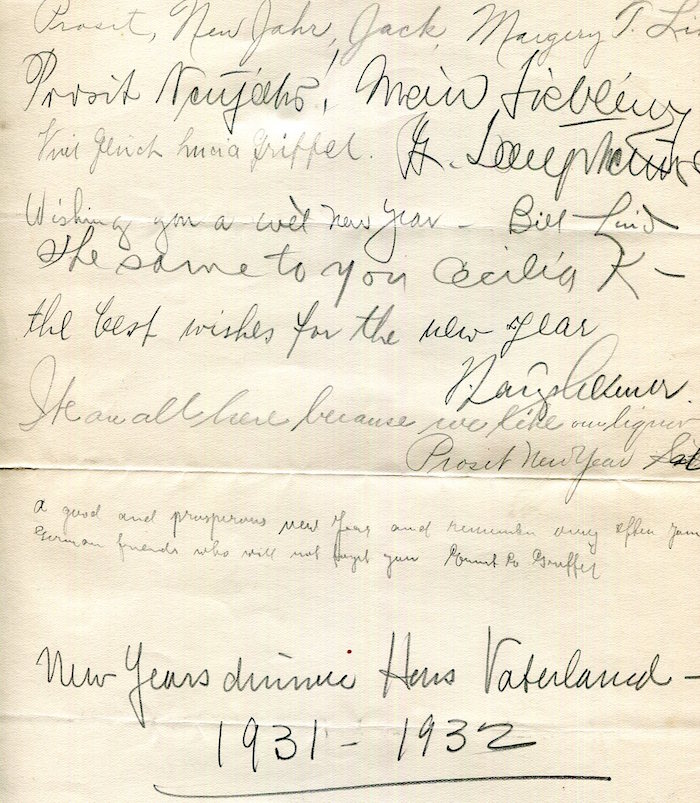 Prosit, New Jahr, Jack, Margery T.
Prosit Neujahr! Mein Liebling
Viel Glück Lucia Griffel. H.
Wishing you a wet New Year - Bill
The same to you Cecilia K-
the best wishes for the new year
We are all here because we like our liquor
Prosit New Year
a good and prosperous new Year and remember very often your
German friends who will not forget you
New Years dinner Haus Vaterland -
1931 - 1932